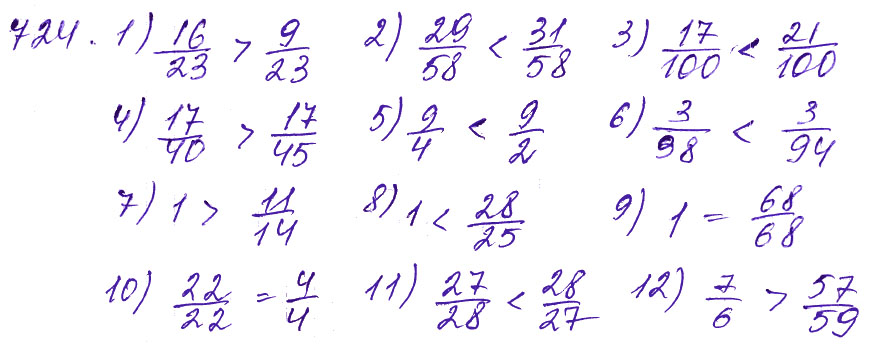 724. 1) 16/23 > 9/23 2) 29/58 < 31/58 3) 17/100 < 21/100
4) 17/40 > 17/45 5) 9/4 < 9/2 6) 3/98 < 3/94
7) 1 > 11/14 8) 1 < 28/25 9) 1 = 68/68
10) 22/22 = 4/4 11) 27/28 < 28/27 12) 7/6 > 57/59